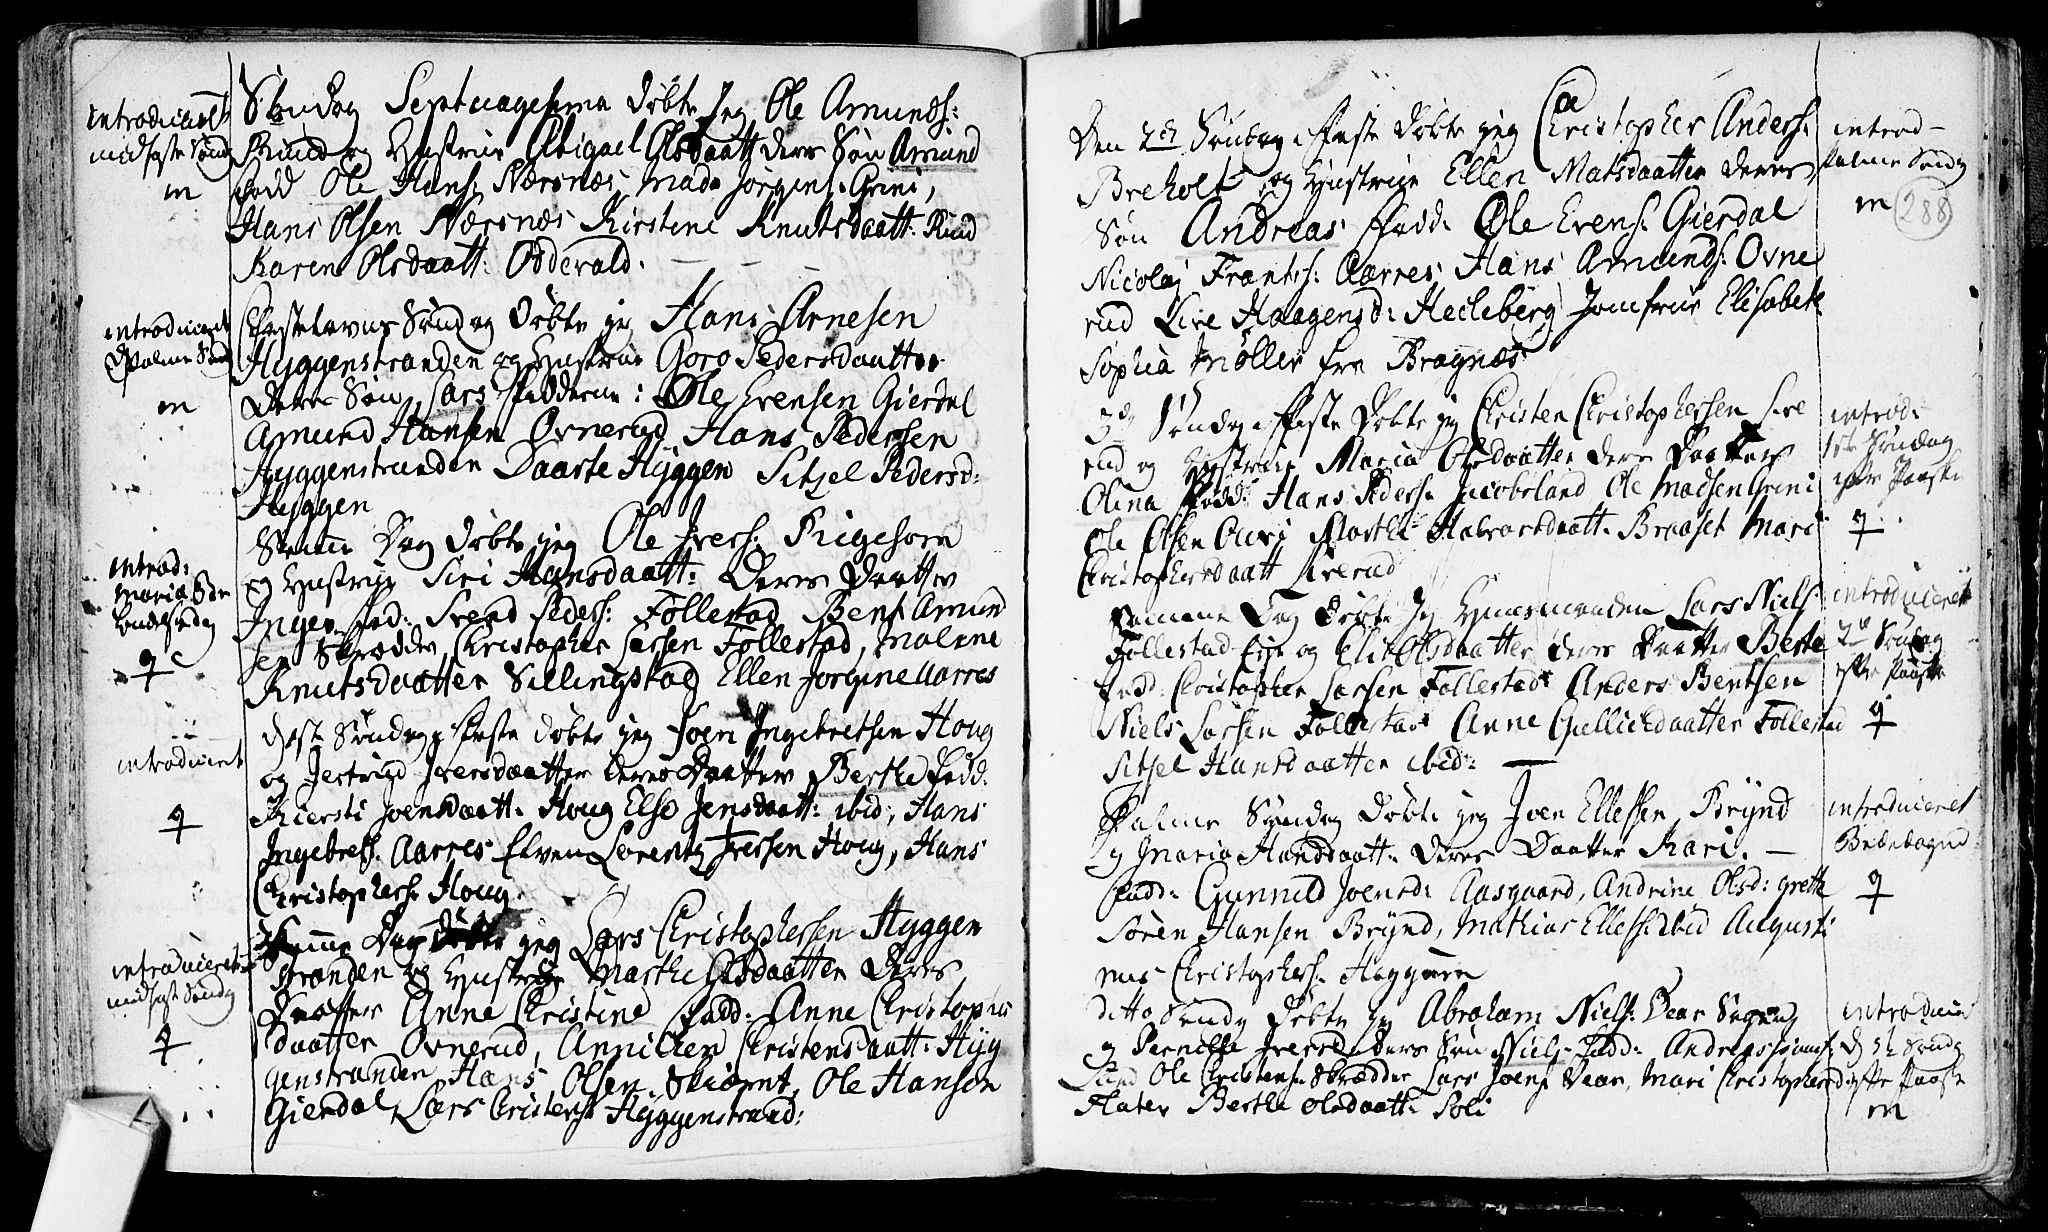 introduceret
midfaste Sønd
m
Søndag Septuagesima døbte Jeg Ole Amunds:
Ruud og Hustrue Abigael Olsdaatt: deres Søn Amund
fadd Ole Hans: Nærsnæs, Mads Jørgens: Grini,
Hans Olsen Nærsnæs Kirstine Knutsdaatt: Ruud
Karen Olsdaatt: Odevald.
introduceret
Palme Sønd
m
Fastelavns Søndag døbte jeg Hans Arnesen
Hyggenstranden og Hustrue Goro Pedersdaatter
deres Søn Lars Fadderne: Ole Evensen Gierdal
Amund Hansen Ovnerud Hans Pedersen
Hyggenstranden Daarte Hyggen Sitzel Pedersd:
Hyggen
introd:
Mariæ Be
budelsedag
♀
Samme Dag døbte jeg Ole Ivers:
og Hustrue Siri Hansdaatt: deres Daatter
Inger fad: Svend Peders: Follestad Bent Amund
sen Skrædder Christopher Larsen Follestad, Malene
Knutsdaatter Sillingstad Ellen Jorgine Aarres
introduceret
♀
1ste Søndag i Faste døbte jeg Joen Ingebretsen Houg
og Iversdaatter deres Daatter Berthe fadd:
Kiersti Joensdaatt: Houg Else Jensdaatt: ibid, Hans
Ingebrets: Aarres Elven Lorentz Iversen Houg, Hans
Christophers: Houg.
introduceret
midfast Søndag
♀
Samme Dag døbte jeg Lars Christophersen Hyggen
stranden og Hustrue Marthe Olsdaatter deres
Daatter Anne Christine fadd: Anne Christophers
daatter Ovnerud, Annichen Christensdaatt: Hyg
genstranden Hans Olsen Skiørnt, Ole Hansen
Gierdal Lars Christens: Hyggenstrand:
288
Den 2den Søndag i Faste døbte jeg Christopher Anders:
Breholt og Hustrue Ellen Matsdaatter deres
Søn Andreas Fadd: Ole Evens: Gierdal
Nicolaj Frantzs: Aarres Hans Amunds: Ovne
rud Live Haagensd: Hecleberg Jomfrue Elisabeth
Sophia Møller fra Bragnæs
introd
Palme Søndag
m
3de Søndag i Faste døbte jeg Christen Christophersen Sire
rud og Hustrue Maria Olsdaatter deres Daatter
Olina Fadd: Hans Peders: Jacobsland Ole Madsen Grini
Ole Olsen Auvi Marthe Halvorsdaatt: Braaset Mari
Christophersdaatt Sirerud
introd:
1ste Søndag
efter Paaske
♀
Samme Dag døbte Jeg Huusmanden Lars Niels:
Follestad Eje og Eli Olsdaatter deres Daatter Berte
fadd: Christopher Larsen Follestad Anders Bentsen
Niels Larsen Follestad Anne Gulliksdaatter Follestad
Sitsel Hansdaatter ibid:
introduceret
2den Søndag
efter Paaske
♀
Palme Søndag døbte jeg Joen Ellefsen Brynd
og Maria Hansdaatt: deres Daatter Kari.
fadd: Gunnild Joensd: Aasgaard, Andrine Olsd: grette
Søren Hansen Brynd, Mathias Ellefs: ibid Augusti
nus Christophers: Haggeren
introduceret
Bededagend
♀
ditto Søndag døbte jeg Abraham Niels: Vear
og Pernille Iversd: deres Søn Niels fadd: Andreas
Lund Ole Christens: Skrædder Lars Joens: Vear, Mari Christophersd:
Slater Berthe Olsdaatt: Soli
introducer
d 5te Søndag
efter Paaske
m